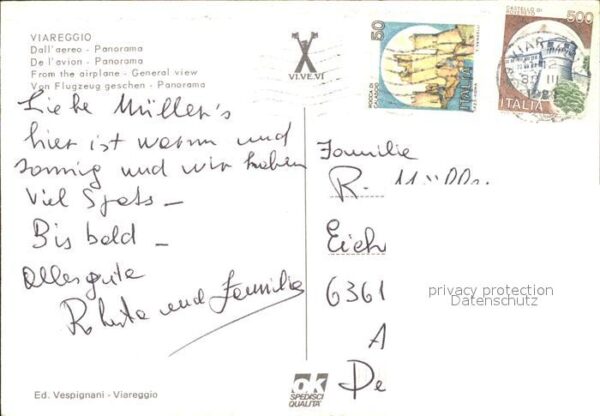 VIAREGGIO
Dall'aereo - Panorama
De l'avion - Panorama
From the airplane - General view
Von Flugzeug geschen - Panorama
Liebe Müller's
hier ist warm und
sonnig und wir haben
Viel Spass -
Bis bald -
Alles gute
Roberta und Familie
Ed. Vespignani - Viareggio
VI.VE.VI
50
ITALIA
ROCCA DI
CALASCIO
CASTELLO DI
ROVERETO
500
ITALIA
VIAR
Familie
R. Müller
Eich
6361
A
De
privacy protection
Datenschutz
ok
SPEDISCI
QUALITA'